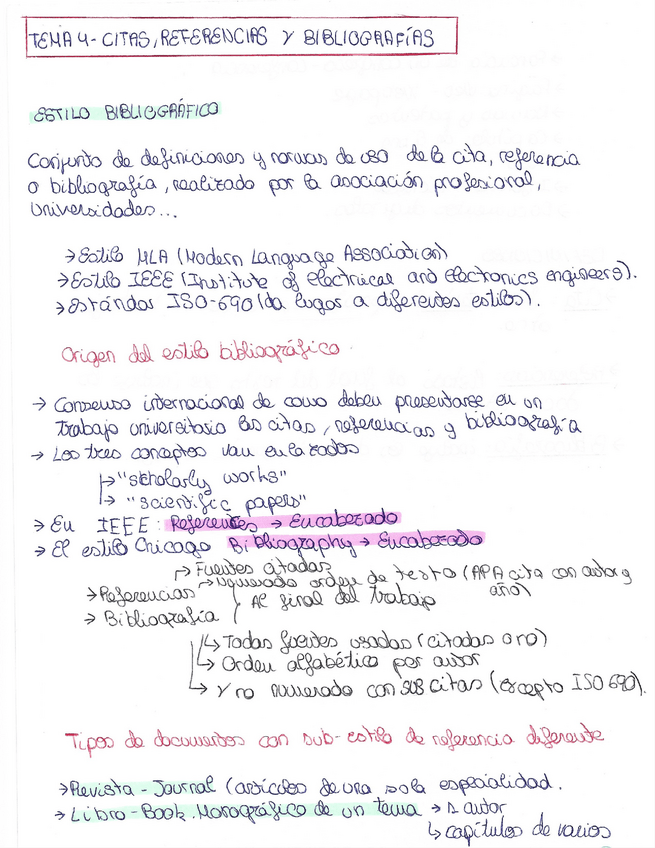 TEMA 4- CITAS, REFERENCIAS Y BIBLIOGRAFÍAS
ESTILO BIBLIOGRÁFICO
Conjunto de definiciones y normas de uso de la cita, referencia
o bibliografía, realizado por la asociación profesional,
universidades...
→ Estilo MLA (Modern Language Association)
→ Estilo IEEE (Institute of electrical and electronics engineers).
→ Estándar ISO-690 (da lugar a diferentes estilos).
Origen del estilo bibliográfico.
→ Consenso internacional de como deben presentarse en un
trabajo universitario las citas, referencias y bibliografía
→ Los tres conceptos van enlazados
→ "scholarly works"
→ "scientific papers"
→ En IEEE: References → Encabezado
→ El estilo Chicago Bibliography → Encabezado
→ Fuentes citadas
→ Numerado orden de texto (APA cita con autor y
año)
→ Referencias
→ Bibliografía } Al final del trabajo
→ Todas fuentes usadas (citadas o no)
→ Orden alfabético por autor
→ Y no numerado con sus citas (excepto ISO 690).
Tipos de documentos con sub-estilo de referencia diferente
→ Revista - Journal (artículos de una sola especialidad.
→ Libro - Book. Monográfico de un tema → 1 autor
↳ capítulos de varios